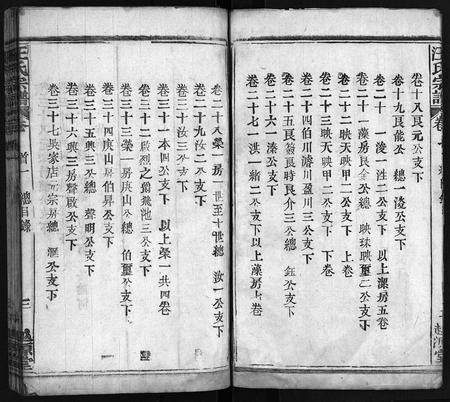 汪氏宗譜
卷十八良元公支下
卷十九良能公 總一淩公支下
卷二十 一浚一注二公支下 以上潔房五卷
卷二十一藻房良金公總 映珠映璽二公支下
卷二十二映天映甲二公支下 上卷
卷二十三映天映甲二公支下 下卷
卷二十四伯川濬川盈川三公支下
卷二十五良翁良時良介三公總 鈺公支下
卷二十六一溱公支下
卷二十七一淇一緒二公支下以上藻房上卷
卷二十八榮一房一世至十世總 汝一公支下
卷二十九汝二公支下
卷三十汝三公支下
卷三十一本四公支下 以上榮一共四卷
卷三十二啟烈之鵬飛池三公支下
卷三十三榮一房庚山公總 伯璽公支下
卷三十四庚山房伯昇公支下
卷三十五興三公總 聲明公支下
卷三十六興三房聲啟公支下
卷三十七吳家店 宗房總 公支下
汪氏宗譜 卷首一 總目錄 三 越源堂